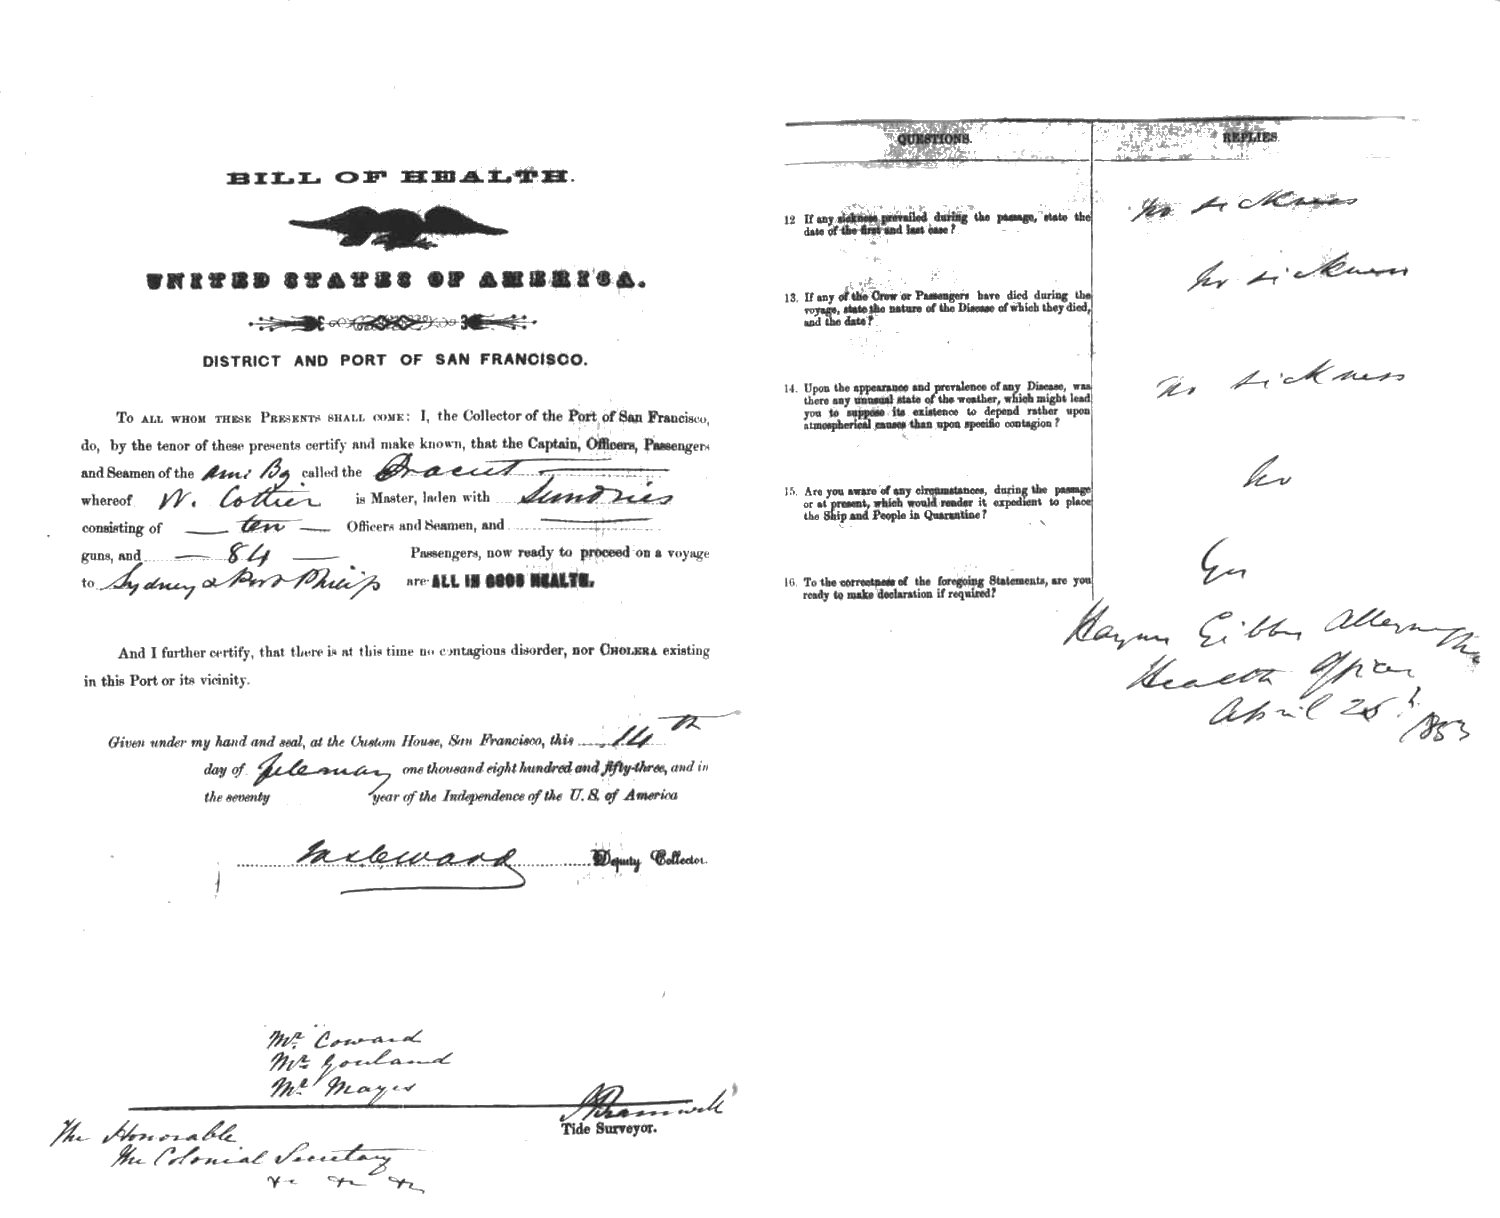 BILL OF HEALTH.
UNITED STATES OF AMERICA.
DISTRICT AND PORT OF SAN FRANCISCO.
TO ALL WHOM THESE PRESENTS SHALL COME: I, the Collector of the Port of San Francisco,
do, by the tenor of these presents certify and make known, that the Captain, Officers, Passengers
and Seamen of the Ami Bg called the Dracut
whereof W. Cottier is Master, laden with Sundries
consisting of ten Officers and Seamen, and
guns, and 84 Passengers, now ready to proceed on a voyage
to Sydney & Port Philip are ALL IN GOOD HEALTH.
And I further certify, that there is at this time no contagious disorder, nor CHOLERA existing
in this Port or its vicinity.
Given under my hand and seal, at the Custom House, San Francisco, this 14th
day of one thousand eight hundred and fifty-three, and in
the seventy year of the Independence of the U. S. of America
Deputy Collector.
Mr. Coward
Mr. Gouland
Mr. Mayes
Bramwell
Tide Surveyor.
The Honorable
The Colonial Secretary
&c &c &c
QUESTIONS. REPLIES
12 If any sickness prevailed during the passage, state the
date of the first and last case?
No sickness
13. If any of the Crew or Passengers have died during the
voyage, state the nature of the Disease of which they died,
and the date?
No sickness
14. Upon the appearance and prevalence of any Disease, was
there any unusual state of the weather, which might lead
you to suppose its existence to depend rather upon
atmospherical causes than upon specific contagion?
No sickness
15. Are you aware of any circumstances, during the passage
or at present, which would render it expedient to place
the Ship and People in Quarantine?
No
16. To the correctness of the foregoing Statements, are you
ready to make declaration if required?
Yes
Haynes Gibbes Alleyne
Health Officer
April 25th 1853